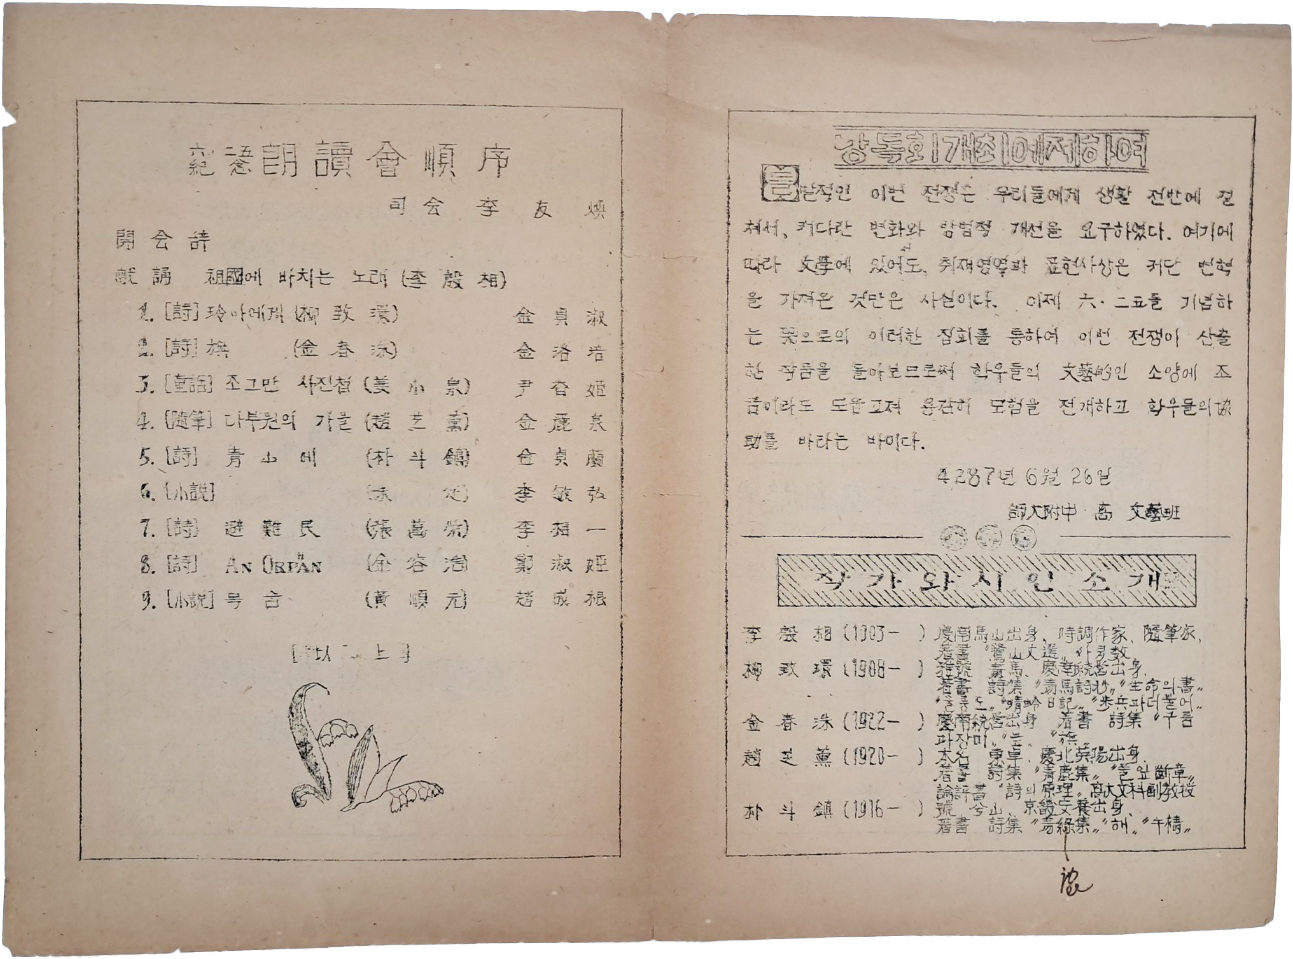 六二五紀念朗讀會順序
司会 李友煥
開会
獻誦 祖國에 바치는 노래 (李殷相)
1. [詩] 玲아에게 (柳致環) 金貞淑
2. [詩] 旗 (金春洙) 金洛浩
3. [童謠] 조그만 사진첩 (姜小泉) 尹杏姬
4. [隨筆] 다부원의 가을 (趙芝薰) 金鹿泉
5. [詩] 青山에 (朴斗鎮) 金貞蘭
6. [小説] 李敏弘
7. [詩] 避難民 (張萬榮) 李相一
8. [詩] AN ORPHAN (金容浩) 鄭淑姬
9. [小説] 목숨 (黃順元) 趙成根
以上
낭독회개최에제하여
동란적인 이번 전쟁은 우리들에게 생활 전반에 걸
쳐서, 커다란 변화와 방법적 개선을 요구하였다. 여기에
따라 文學에 있어서도, 취재영역과 표현사상은 커단 변혁
을 가져온 것만은 사실이다. 이제 六·二五를 기념하
는 뜻으로의 이러한 집회를 통하여 이번 전쟁이 산출
한 작품을 돌아보므로써 학우들의 文藝的인 소양에 조
금이라도 도움고져 용감히 모험을 전개하고 학우들의 協
助를 바라는 바이다.
4287년 6월 26일
師大附中·高 文藝班
작가와시인소개
李殷相 (1903— ) 慶南馬山出身, 時調作家, 隨筆家,
著書 "鷺山文選,
柳致環 (1908— ) 雅號 青馬, 慶南統營出身,
著書 詩集 "青馬詩抄" "生命의書"
"울릉도" "蜻蛉日記" "步兵과더불어"
金春洙 (1922— ) 慶南統營出身 著書 詩集 "구름
과장미" "늪" "旗
趙芝薰 (1920— ) 本名 東卓, 慶北英陽出身,
著書 詩集 "青鹿集" "풀잎斷章"
論評書 "詩의原理" 高大文科副教授
朴斗鎮 (1916— ) 號 兮山, 京畿安養出身,
著書 詩集 "青綠集" "해" "午禱"